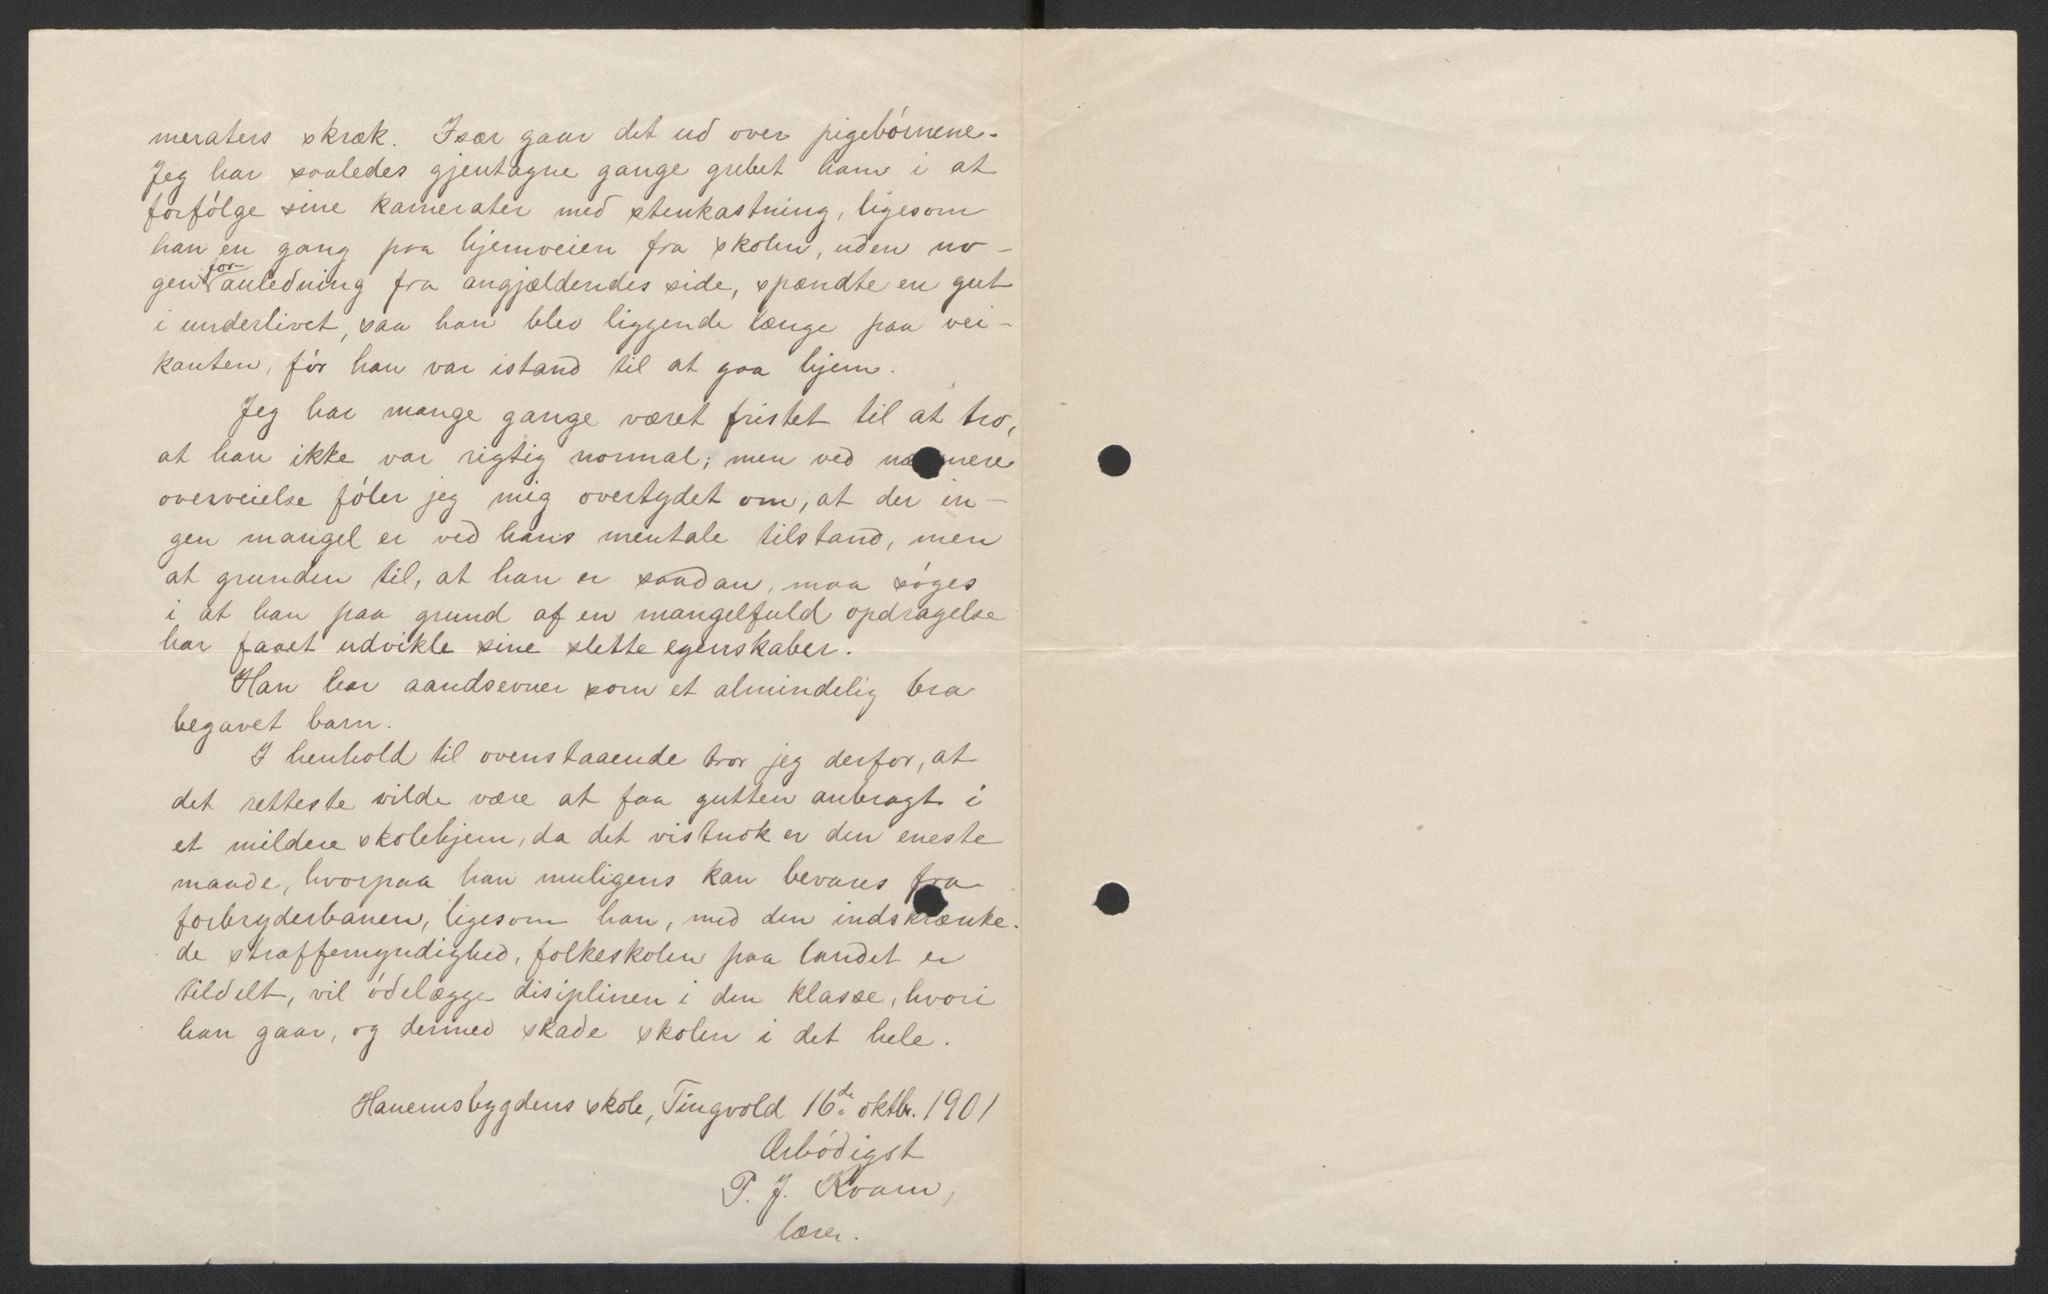 meraters skræk. Især gaar det ud over pigebórnene.
Jeg har saaledes gjentagne gange grebet ham i at
forfólge sine kamerater med stenkastning, ligesom
han en gang paa hjemveien fra skolen, uden no-
for
gen anledning fra angjældendes side, spændte en gut
i underlivet, saa han blev liggende længe paa vei-
kanten, fór han var istand til at gaa hjem.
Jeg har mange gange været fristet til at tro,
at han ikke var rigtig normal; men ved nærmere
overveielse fóler jeg mig overtydet om, at der in-
gen mangel er ved hans mentale tilstand, men
at grunden til, at han er saadan, maa sóges
i at han paa grund af en mangelfuld opdragelse
har faaet udvikle sine slette egenskaber.
Han har aandsevner som et almindelig bra
begavet barn.
I henhold til ovenstaaende tror jeg derfor, at
det retteste vilde være at faa gutten anbragt i
et mildere skolehjem, da det vistnok er den eneste
maade, hvorpaa han muligens kan bevares fra
forbryderbanen, ligesom han, med den indskrænke-
de straffemyndighed, folkeskolen paa landet er
tildelt, vil ódelægge disiplinen i den klasse, hvori
han gaar, og dermed skade skolen i det hele.
Hanemsbygdens skole, Tingvold 16de oktbr. 1901
Ærbódigst
P. J. Kvam,
lærer.